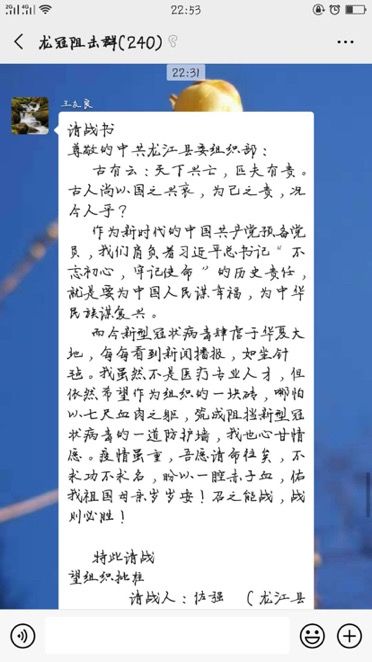 22:53
龙冠阻击群(240)
22:31
王友良
请战书
尊敬的中共龙江县委组织部：
古有云：天下兴亡，匹夫有责。
古人尚以国之兴衰，为己之责，况
今人乎？
作为新时代的中国共产党预备党
员，我们肩负着习近平总书记“不
忘初心，牢记使命”的历史责任，
就是要为中国人民谋幸福，为中华
民族谋复兴。
而今新型冠状病毒肆虐于华夏大
地，每每看到新闻播报，如坐针
毡。我虽然不是医疗专业人才，但
依然希望作为组织的一块砖，哪怕
以七尺血肉之躯，筑成阻挡新型冠
状病毒的一道防护墙，我也心甘情
愿。疫情虽重，吾愿请命往矣，不
求功不求名，盼以一腔赤子血，佑
我祖国母亲岁岁安！召之能战，战
则必胜！
特此请战
望组织批准
请战人：伍强 （龙江县